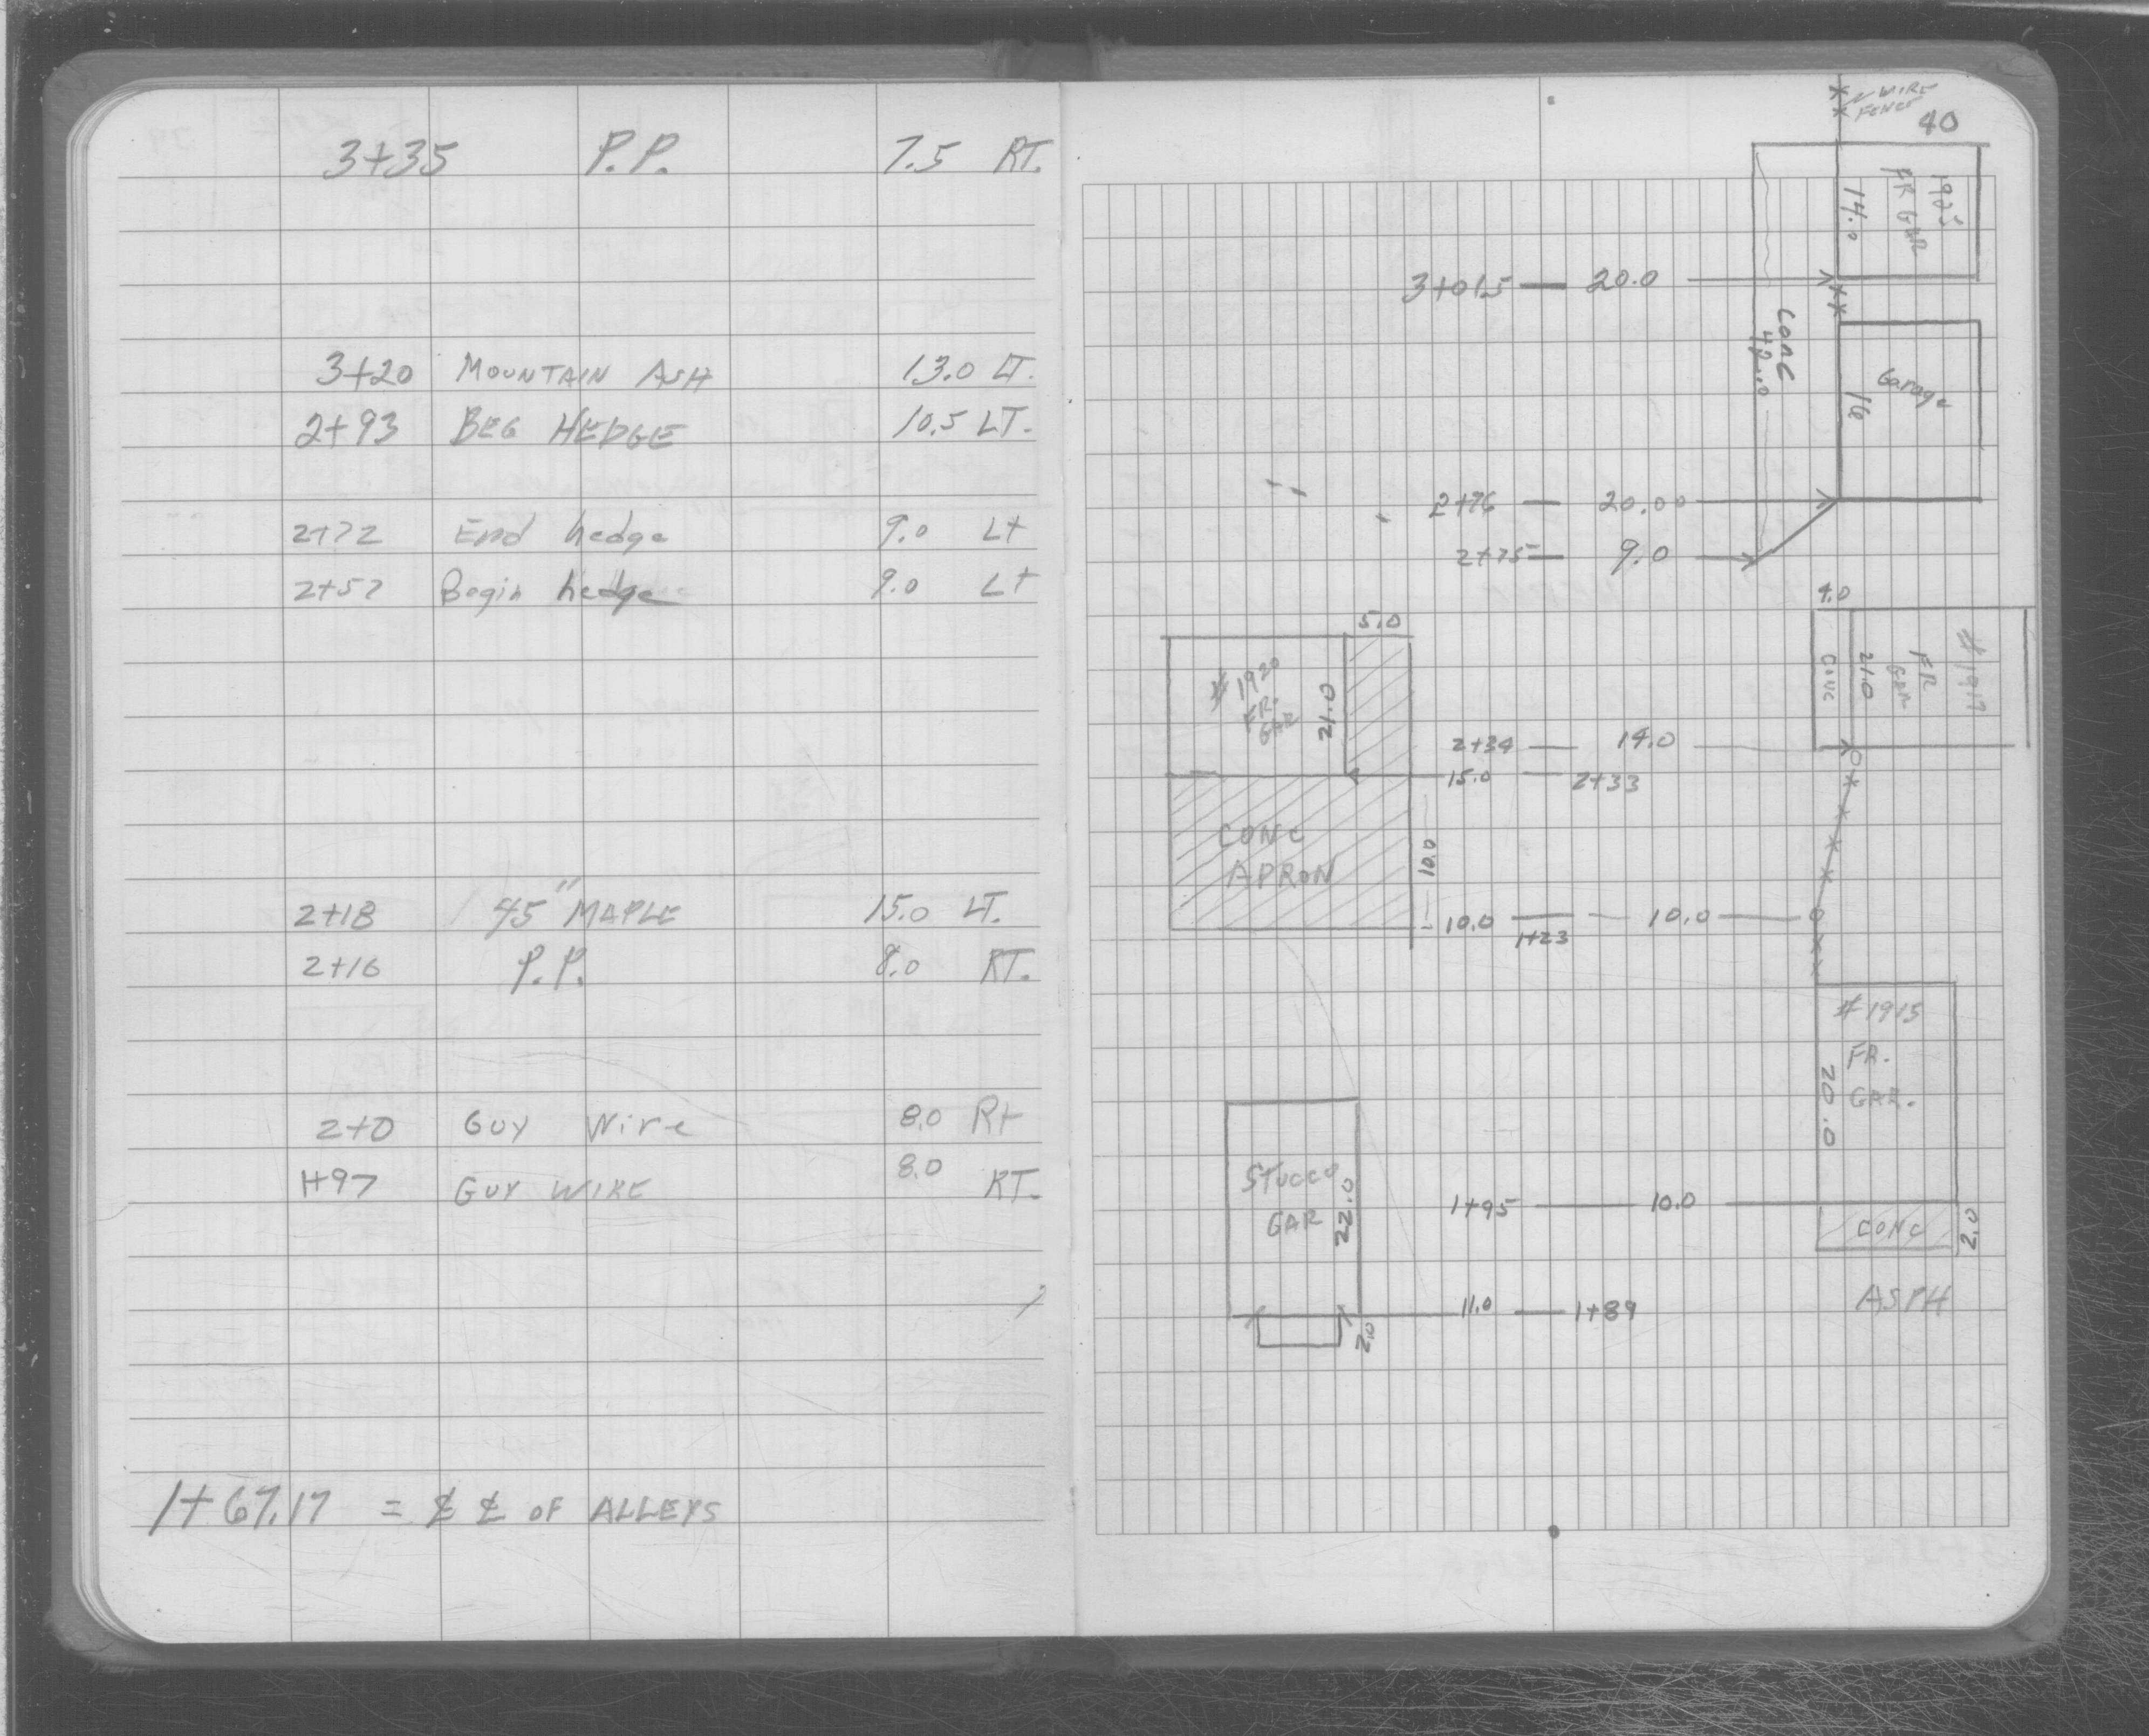 3+35 P.P. 7.5 RT.
3+20 MOUNTAIN ASH 13.0 LT.
2+93 BEG HEDGE 10.5 LT.
2+72 End hedge 9.0 Lt
2+57 Begin hedge 9.0 Lt
2+18 45" MAPLE 15.0 LT.
2+16 P.P. 8.0 RT.
2+0 Guy Wire 8.0 Rt
1+97 GUY WIRE 8.0 RT.
1+67.17 = ℄ ℄ OF ALLEYS
WIRE
FENCE
40
1925
FR GAR
14.0
3+01.5 — 20.0
CONC
42.0
Garage
16
2+76 — 20.00
2+75 — 9.0
4.0
5.0
#1920
FR.
GAR
21.0
#1917
FR
GAR
21.0
CONC
2+34 — 14.0
15.0 — 2+33
CONC
APRON
10.0
10.0 — 10.0
1+23
#1915
FR.
GAR.
20.0
STUCCO
GAR
22.0
1+95 — 10.0
CONC
2.0
11.0 — 1+89
ASPH
2.0